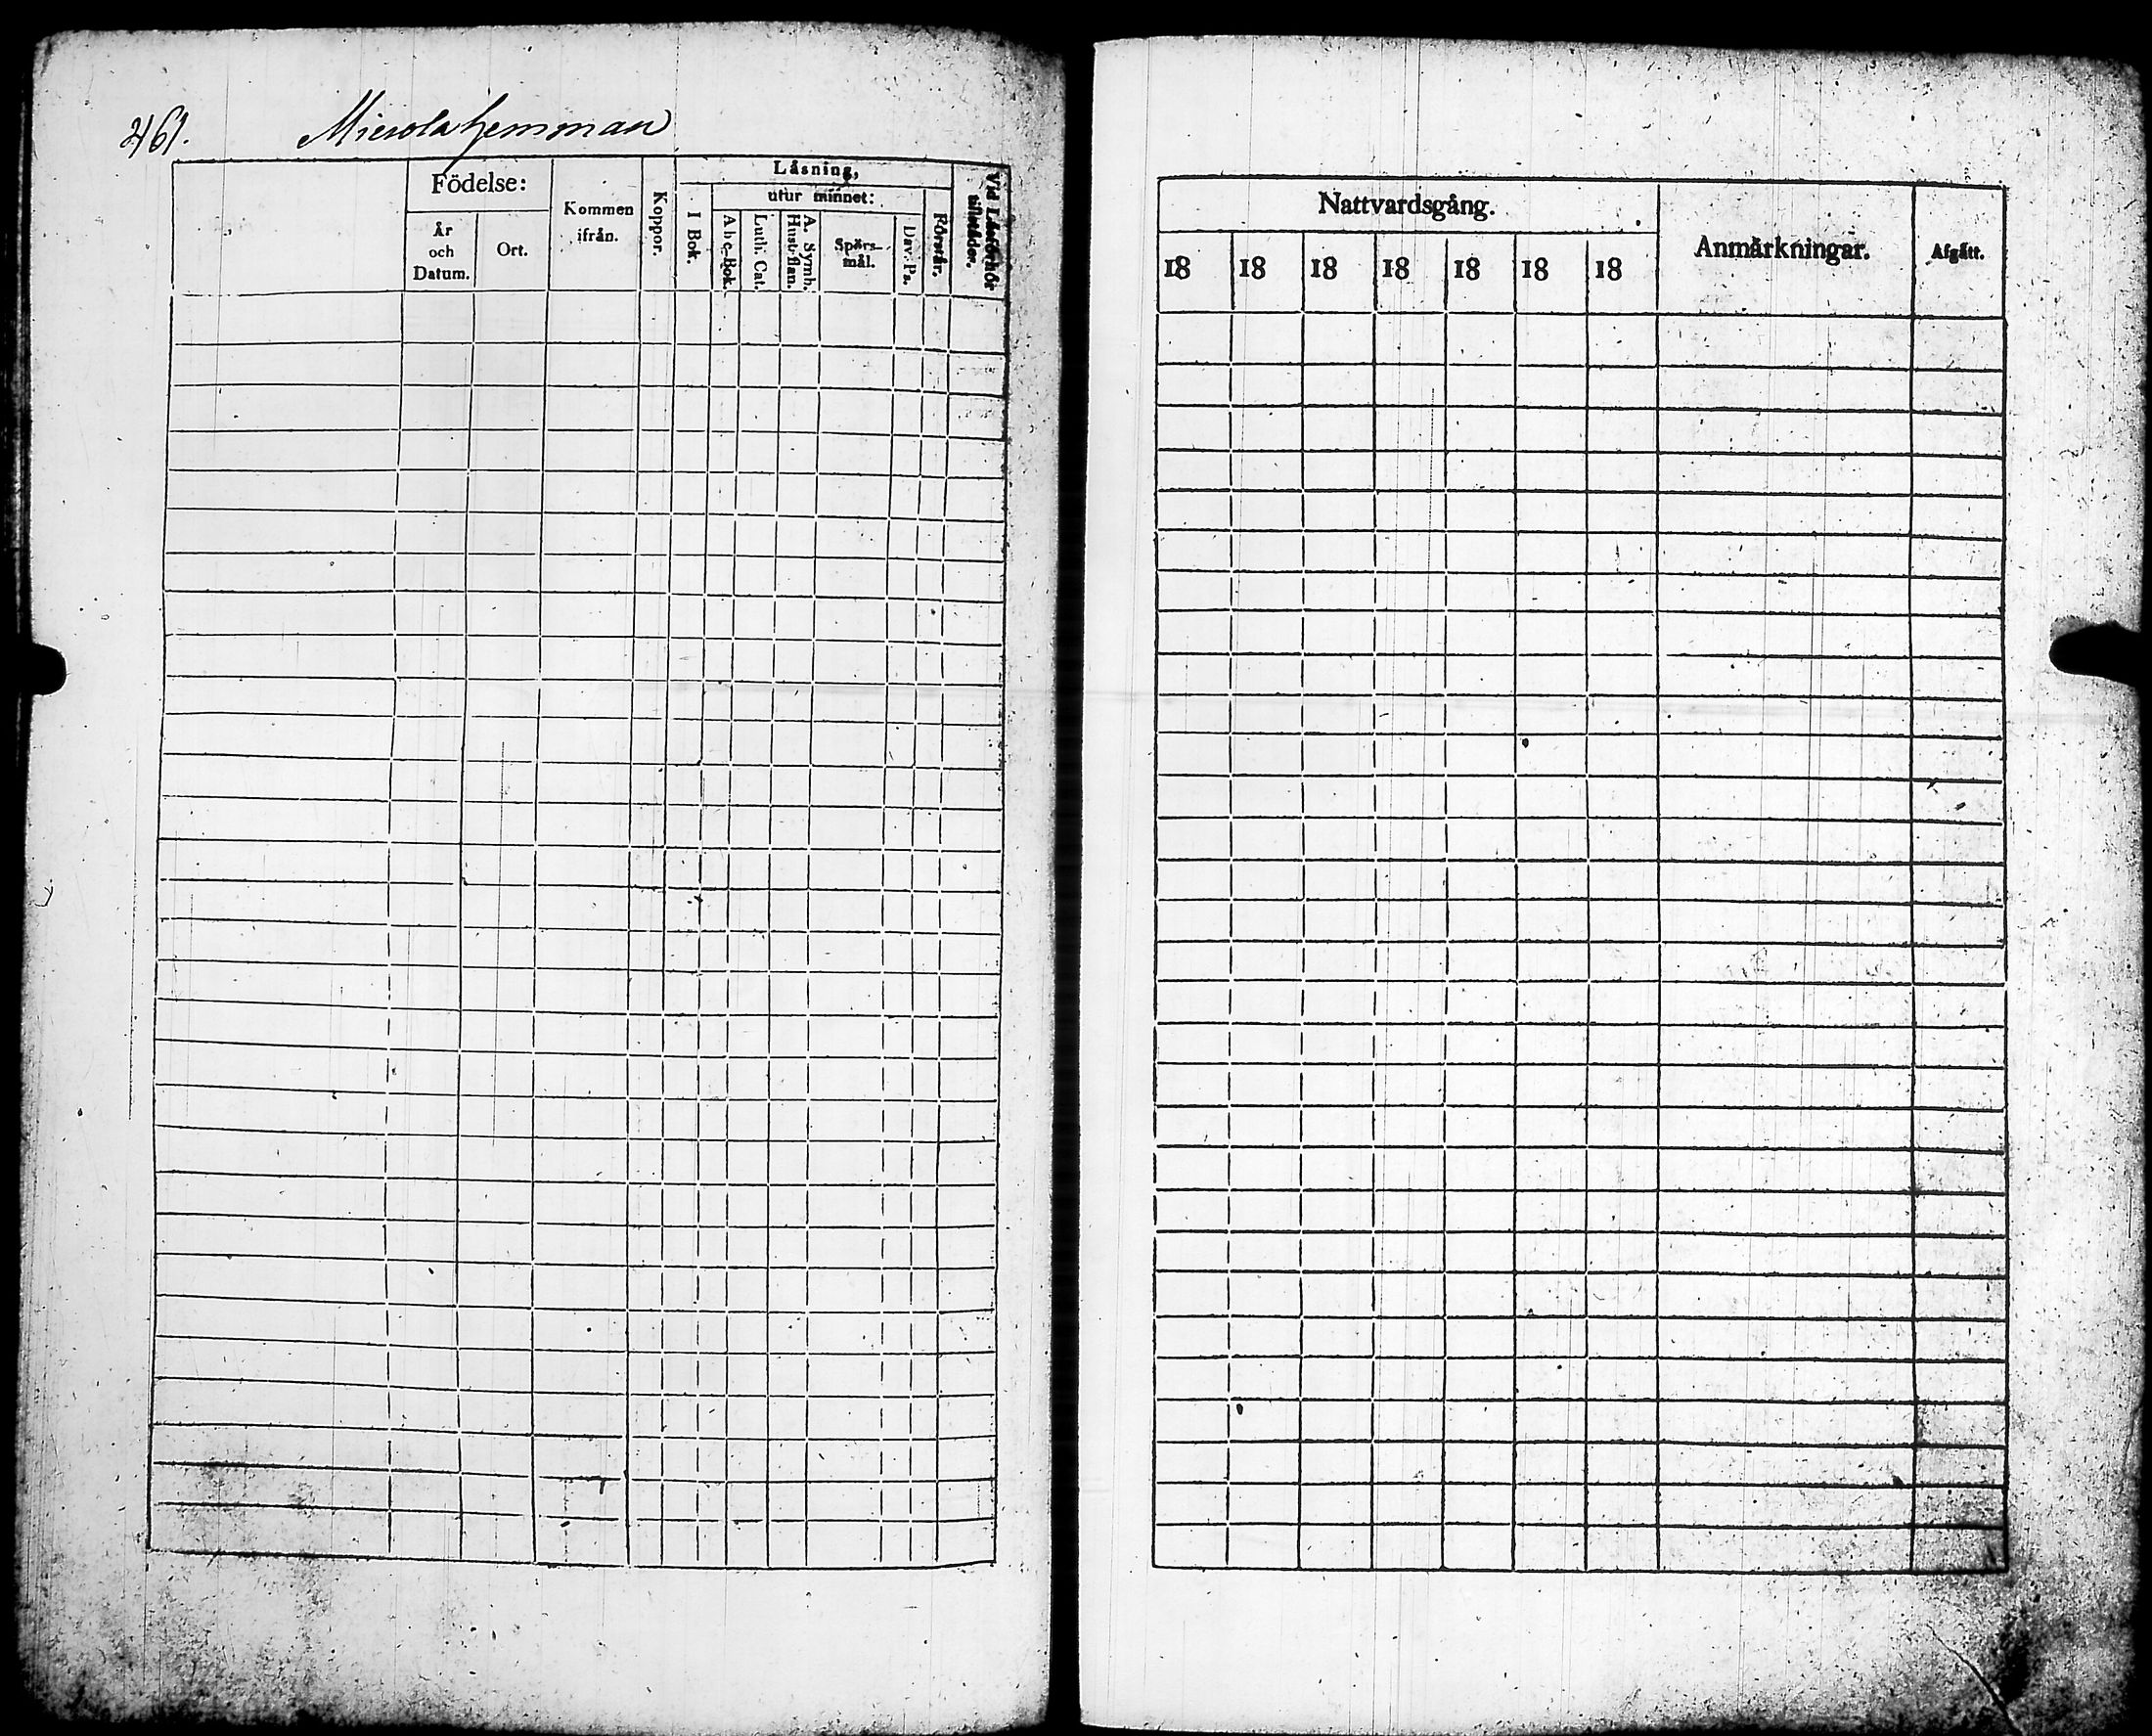 461.
Mierola hemman
Födelse:
År
och
Datum.
Ort.
Kommen
ifrån.
Koppor.
Läsning,
utur minnet:
I Bok.
Abc-Bok.
Luth. Cat.
A. Symb.
Hust.flan.
Spörs-
mål.
Dav. Ps.
Förstår.
Vid Läsförhör
tilstädes.
Nattvardsgång.
18 18 18 18 18 18 18
Anmärkningar.
Afgått.